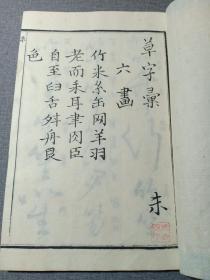 草字彙
六畫
竹米糸缶网羊羽
老而耒耳聿肉臣
自至臼舌舛舟艮
色
未